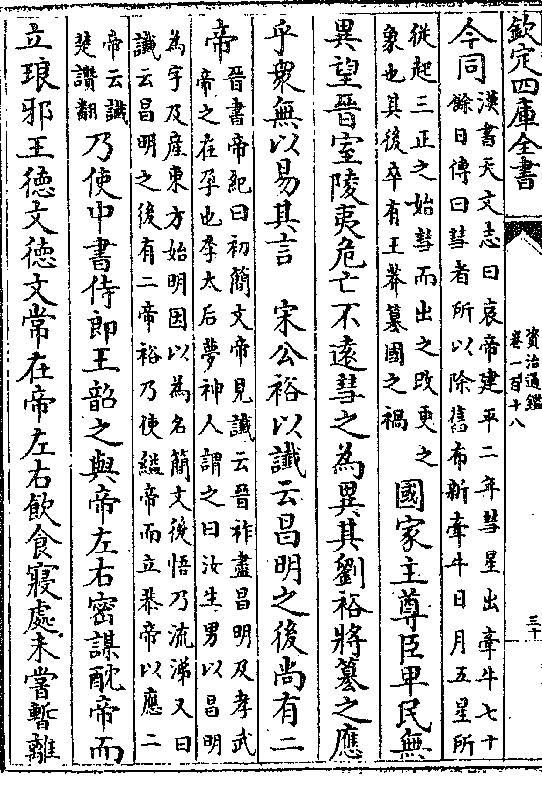 欽定四庫全書
資治通鑑
卷一百十八
三十
今同
漢書天文志曰哀帝建平二年彗星出牽牛七十
餘日傳曰彗者所以除舊布新牽牛日月五星所
從起三正之始彗而出之改更之
象也其後卒有王莽簒國之禍
國家主尊臣卑民無
異望晉室陵夷危亡不遠彗之為異其劉裕將簒之應
乎衆無以易其言　宋公裕以讖云昌明之後尚有二
帝
晉書帝紀曰初簡文帝見讖云晉祚盡昌明及孝武
帝之在孕也李太后夢神人謂之曰汝生男以昌明
為字及產東方始明因以為名簡文後悟乃流涕又曰
讖云昌明之後有二帝裕乃使縊帝而立恭帝以應二
帝云讖
楚譖翻
乃使中書侍郎王韶之與帝左右密謀酖帝而
立琅邪王德文德文常在帝左右飲食寢處未嘗暫離